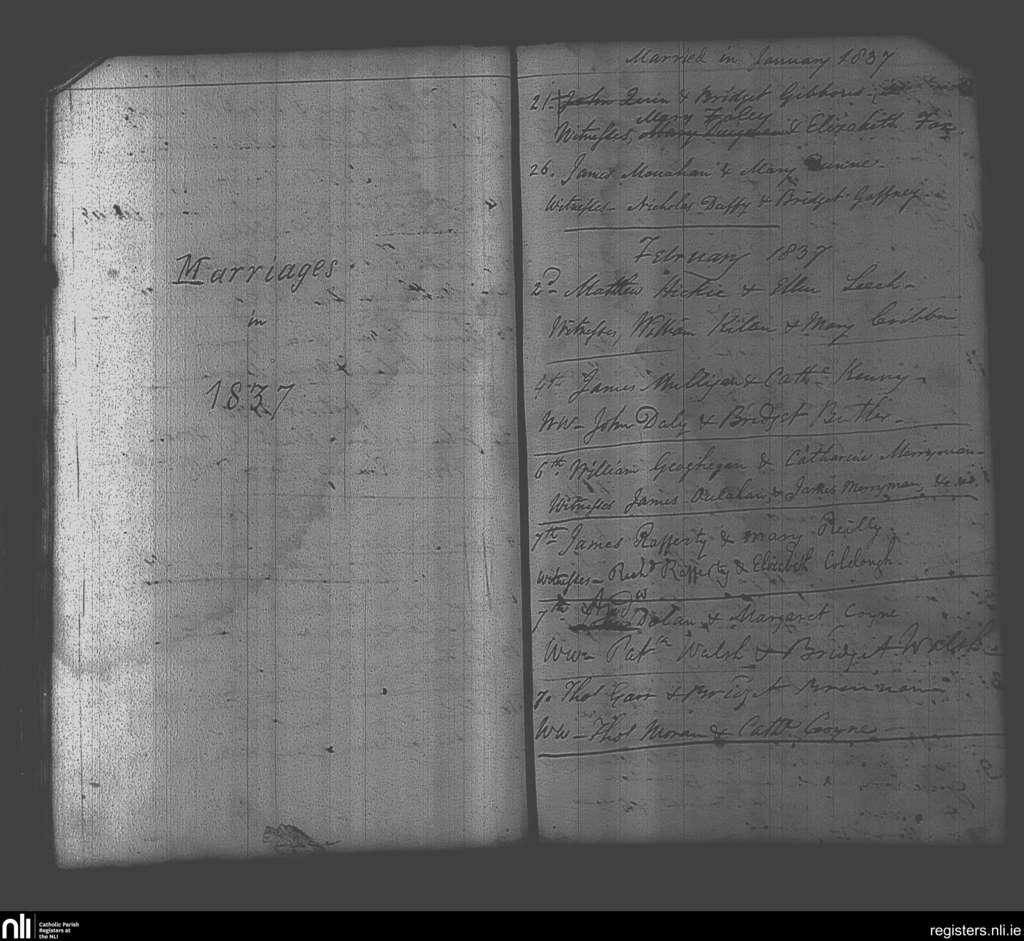 Marriages
in
1837
Married in January 1837
21- John Quin & Bridget Gibbons
Mary Foley
Witnesses, & Elizabeth Fox.
26. James Monahan & Mary Dunne-
Witnesses- Nicholas Duffy & Bridget Gaffney-
February 1837
2d- Matthew Hickie & Ellen Leech-
Witnesses, William Kilan & Mary Cribbin
4th James Mulligan & Cathe Kenny-
WW- John Daly & Bridget Butler-
6th. William Geoghegan & Catharine Merryman-
Witnesses James Oulahan & James Merryman, &c
7th- James Rafferty & Mary Reilly
Witnesses- Richd Rafferty & Elizabeth Coldough.
Andw
7th Dolan & Margaret Coyne
WW- Patk Walsh & Bridget Walsh-
7. Thos Garr & Bridget Brennan
WW- Thos Moran & Cathe Coyne-
nli Catholic Parish
Registers at
the NLI
registers.nli.ie